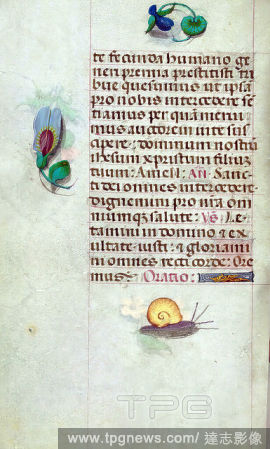 te fecunda humano ge
neri premia prestitisti tri
bue quesumus ut ipsa
pro nobis intercedere sen
tiamus per quam merui
mus auctorem vite sus
cipere: dominum nostrum
ihesum xpristum filium
tuum: Amen. An̄. Sanc
ti dei omnes intercedere
dignemini pro nr̄a om
nium q3 salute: Vs̄. Le
tamini in domino & ex
ultate iusti: & gloriami
ni omnes recti corde: Ore
mus: Oratio:
TPG
www.tpgnews.com/ 達志影像